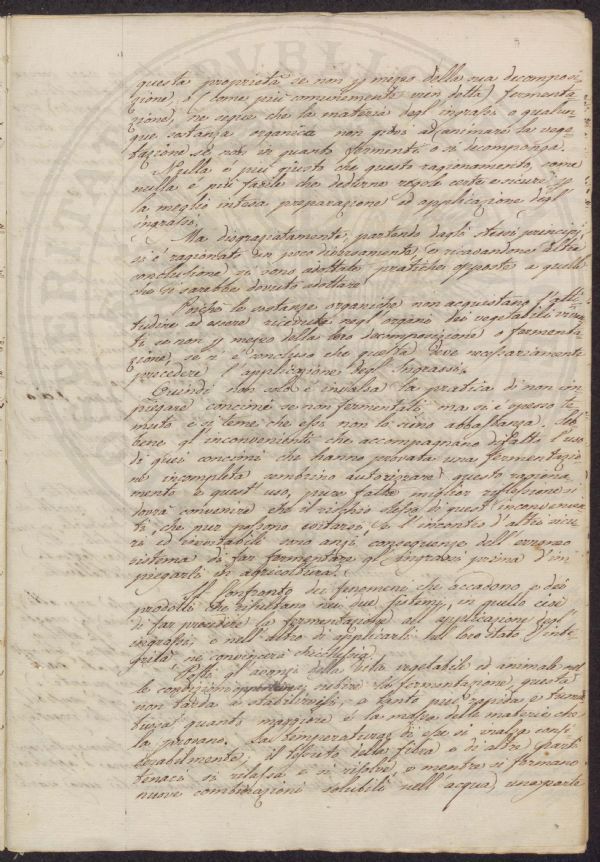 questa proprietà se non p mezzo della sua decomposi
zione, o come più comunemente vien detta fermenta
zione, ne segue che la materia degl'ingrassi o qualun
que sostanza organica non giovi ad animare la vege
tazione se non in quanto fermenti o si decomponga.
Nulla è più giusto che questo ragionamento, come
nulla è più facile che dedurne regole certe e sicure p
la meglio intesa preparazione ed applicazione degl'
ingrassi.
Ma disgraziatamente, partendo dagli stessi principj
si è ragionato un poco diversamente, e ricavandone altra
conclusione si sono adottate pratiche opposte a quelle
che si sarebbe dovuto adottare.
Poiché le sostanze organiche non acquistano l'atti
tudine ad essere ricevute negl'organi dei vegetabili viven
ti se non p mezzo della loro decomposizione o fermenta
zione, se n'è concluso che questa deve necessariamente
precedere l'applicazione degl'Ingrassi.
Quindi non solo è invalsa la pratica di non im
piegare concimi se non fermentati, ma si è spesso te
muto e si teme che essi non lo sieno abbastanza. Seb
bene gl'inconvenienti che accompagnano di fatto l'uso
di quei concimi che hanno provata una fermentazio
ne incompleta sembrino autorizzare questo ragiona
mento e quest'uso, pure fatta miglior riflessione si
dovrà convenire che il rischio stesso di quest'inconvenien
ti, che pur possono evitarsi, e l'incontro d'altri sicu
ri ed inevitabili sono anzi conseguenze dell'erroneo
sistema di far fermentare gl'ingrassi prima d'im
piegarli in agricoltura.
Il confronto dei fenomeni che accadono e dei
prodotti che risultano nei due sistemi, in quello cioè
di far precedere la fermentazione all'applicazione degl'
ingrassi, e nell'altro di applicarli nel loro stato d'inte
grità, ne convincerà chicchesia.
Posti gl'avanzi della vita vegetabile ed animale nel
le condizioni opportune a subire la fermentazione, questa
non tarda a stabilirvisi, e tanto più rapida e tumul
tuosa quanto maggiore è la massa delle materie che
la provano. La temperatura di esse si inalza consi
derabilmente, il tessuto della fibra e di altre parti
tenaci si rilassa e si risolve, e mentre si formano
nuove combinazioni solubili nell'acqua, una parte